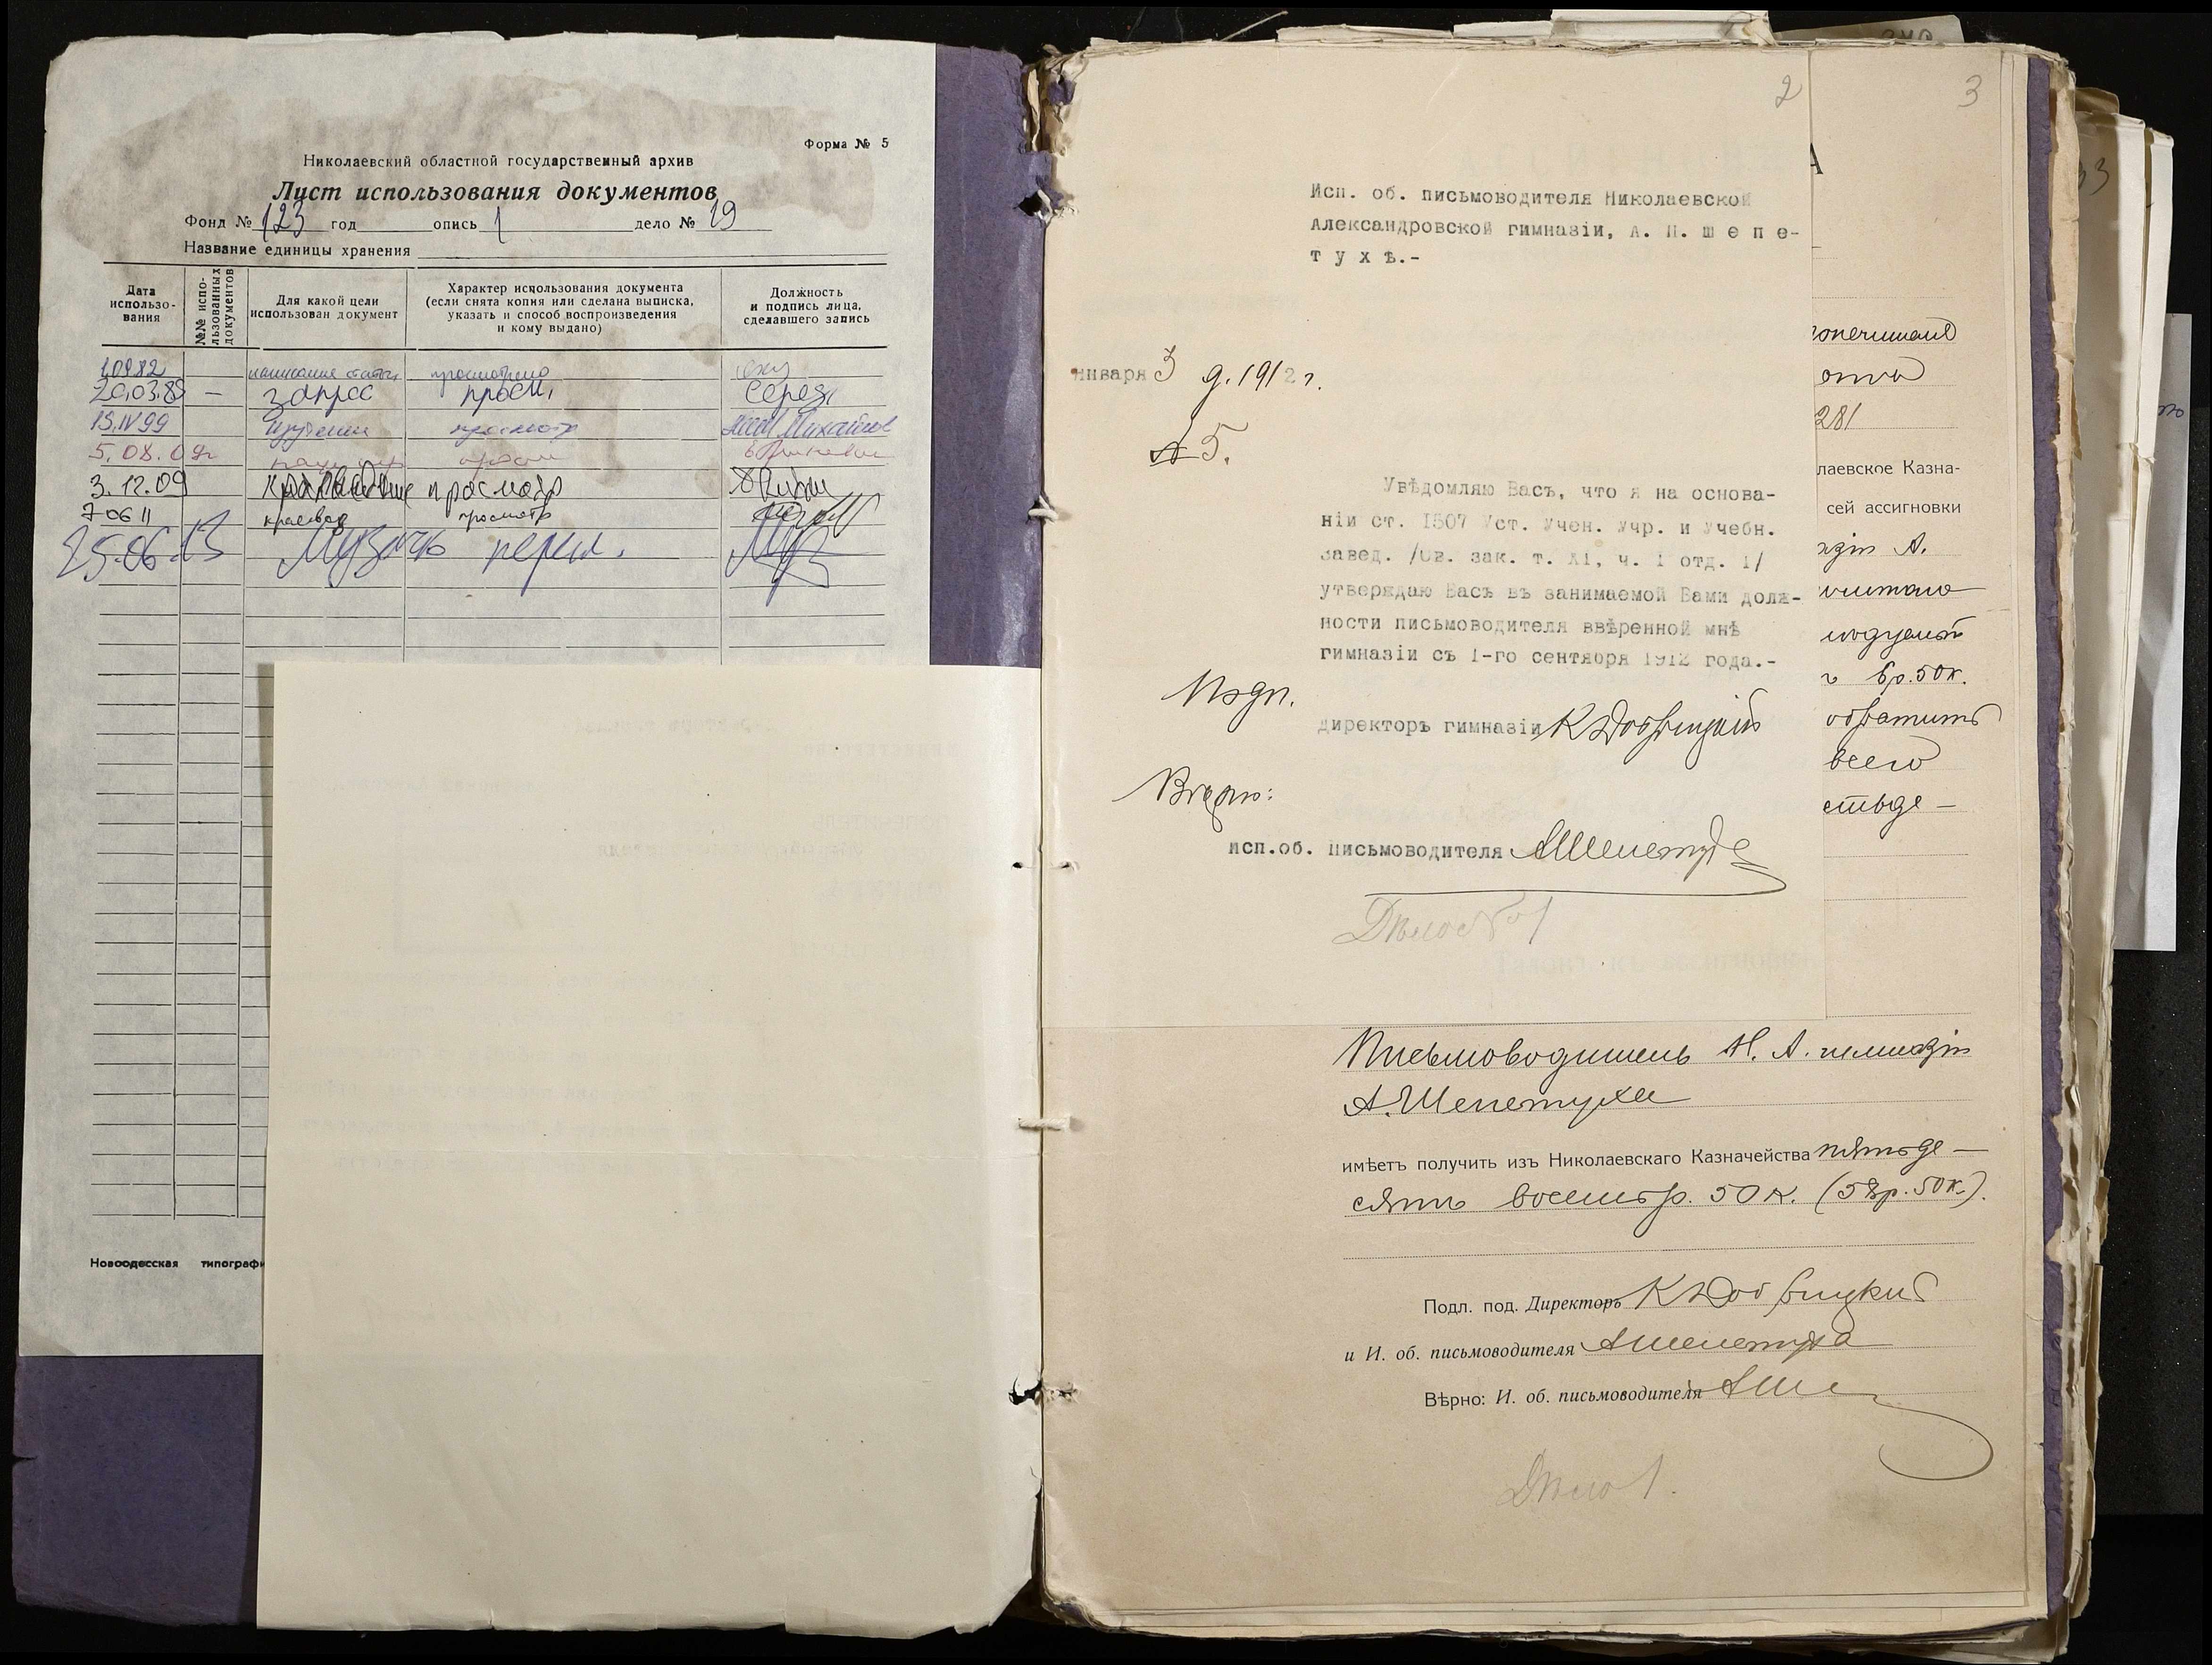 Форма № 5
Николаевский областной государственный архив
Лист использования документов
Фонд № 123 год опись 1 дело № 19
Название единицы хранения
Дата использо-вания
№№ испо-льзованных документов
Для какой цели использован документ
Характер использования документа (если снята копия или сделана выписка, указать и способ воспроизведения и кому выдано)
Должность и подпись лица, сделавшего запись
1.09.82 написание статьи просмотрено
20.03.89 — запрос просм.
19.IV 99 изучение просмотр Михайлов
5.08.09г
3.12.09 краеведение просмотр
7 06 11 краевед просмотр
25.06.13
Новоодесская типографи
2
Исп. об. письмоводителя Николаевской
Александровской гимназіи, А. П. Ш е п е-
т у х ѣ.-
января 3 д. 1912 г.
№ 5.
Увѣдомляю Васъ, что я на основа-
ніи ст. 1507 Уст. Учен. Учр. и Учебн.
Завед. /Св. зак. т. XI, ч. I отд. I/
утверждаю Васъ въ занимаемой Вами долж-
ности письмоводителя ввѣренной мнѣ
гимназіи съ 1-го сентября 1912 года.-
Подп.
Директоръ гимназіи
Вѣрно:
Исп.об. Письмоводителя АШепетуха
Дѣло № 1
3
А
281
лаевское Казна-
сей ассигновки
зіи А.
р. 50к.
всего
Письмоводитель Н. А. гимназіи
А. Шепетуха
имѣетъ получить изъ Николаевскаго Казначейства пятьде—
сятъ восемь р. 50 к. (58р. 50к.).
Подл. под. Директоръ
и И. об. письмоводителя АШепетуха
Вѣрно: И. об. письмоводителя АШе
Дѣло 1.